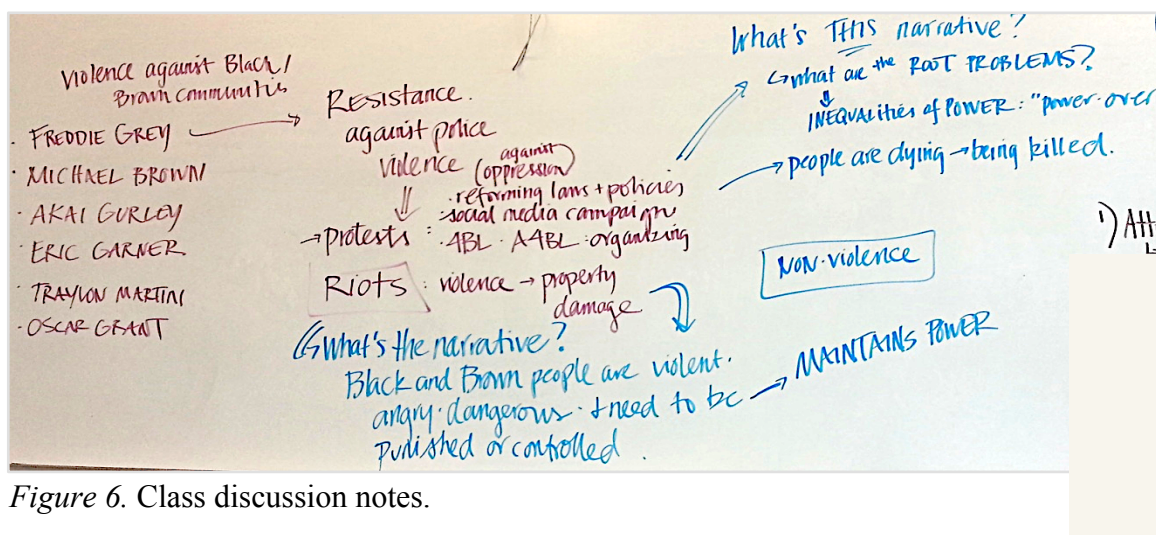 Violence against Black/
Brown communities
· FREDDIE GREY →
· MICHAEL BROWN
· AKAI GURLEY
· ERIC GARNER
· TRAYVON MARTIN
· OSCAR GRANT
RESISTANCE.
against police
violence (against
oppression)
⇓
→ protests :
· reforming laws + policies
· social media campaign
· 4BL · A4BL · organizing
Riots : violence → property
damage
What's the narrative?
Black and Brown people are violent.
angry · dangerous · + need to be →
punished or controlled.
MAINTAINS POWER
What's THIS narrative?
↳ what are the ROOT PROBLEMS?
⇓
INEQUALities of POWER : "power-over
→ people are dying → being killed.
NON-violence
1)
Figure 6. Class discussion notes.